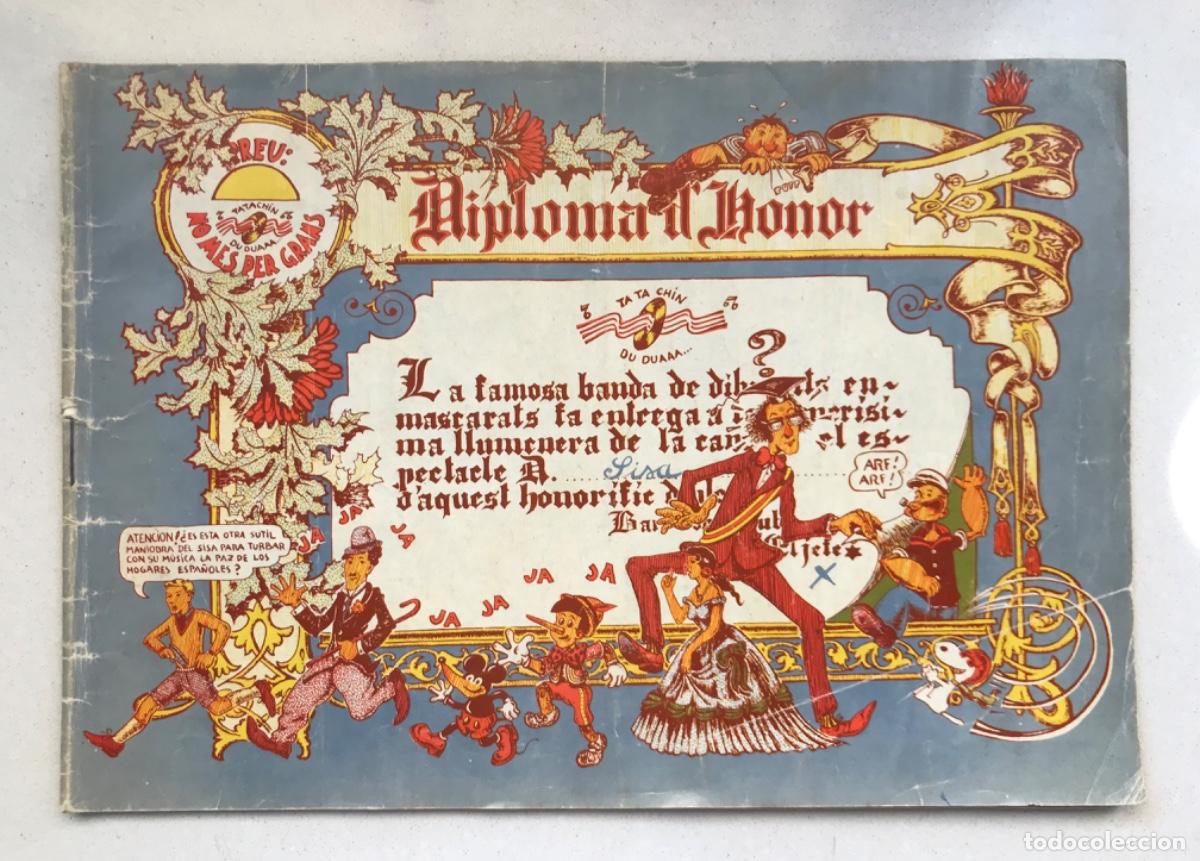 PREU:
NOMÉS PER GRANS
TATACHÍN
DU DUAAA
Diploma d'Honor
TA TA CHÍN
DU DUAAA...
?
La famosa banda de dibuixats en-
mascarats fa entrega a
ma llumenera de la can el es-
pectacle D. Sisa
d'aquest honorific
El jefe
X
ARF!
ARF!
ATENCIÓN! ¿ES ESTA OTRA SUTIL
MANIOBRA DEL SISA PARA TURBAR
CON SU MÚSICA LA PAZ DE LOS
HOGARES ESPAÑOLES?
JA JA
JA JA
JA JA JA JA
todocoleccion